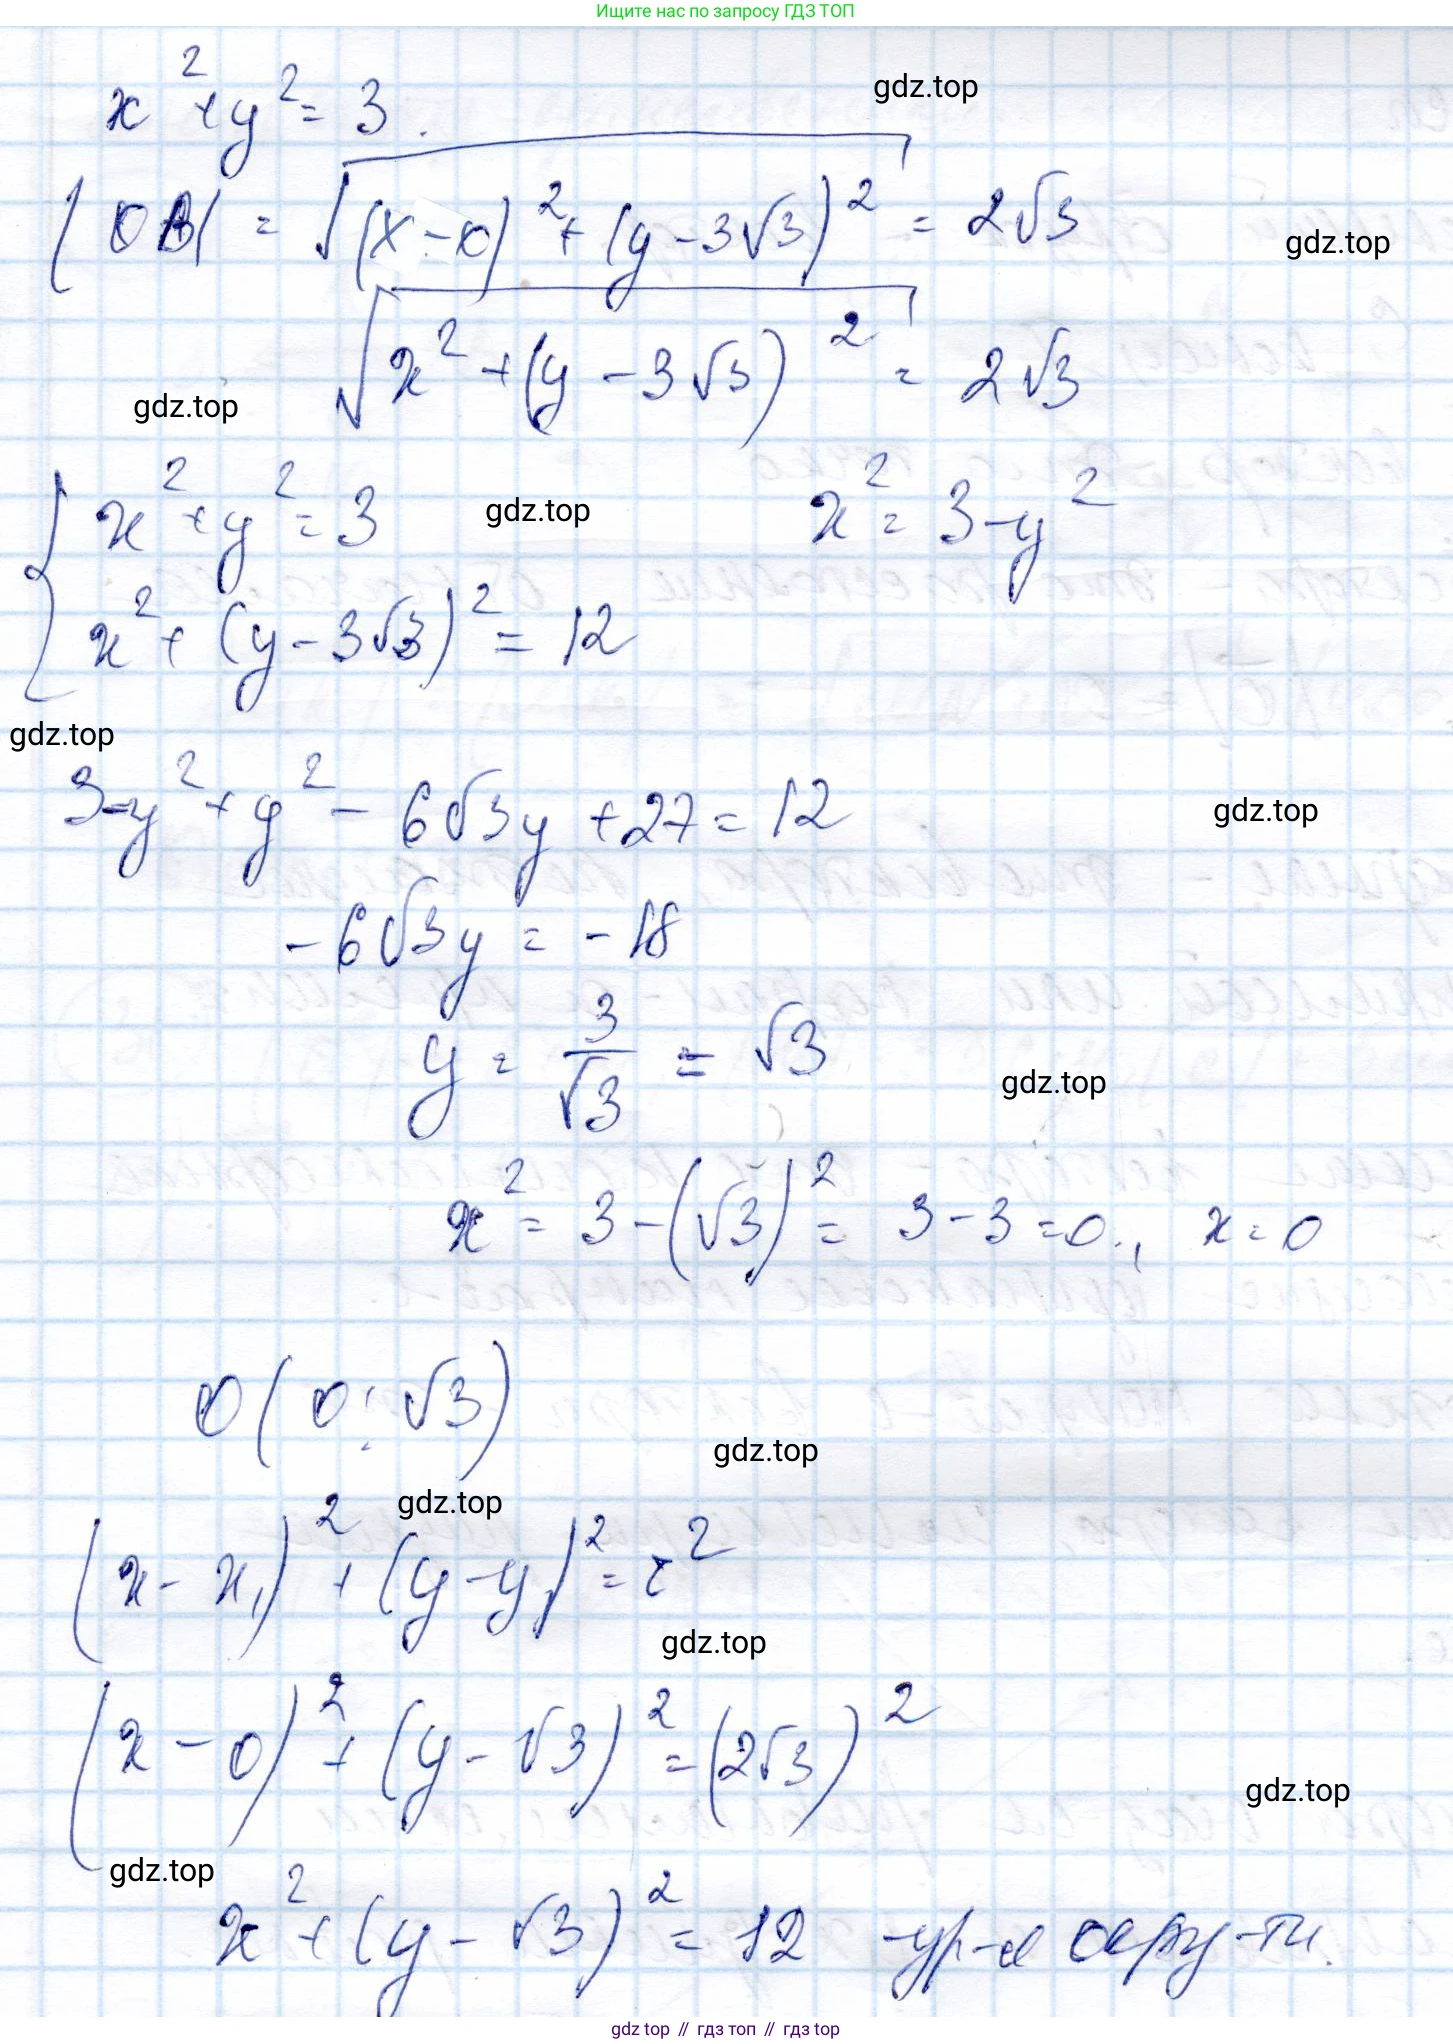 Ищите нас по запросу ГДЗ ТОП
x² + y² = 3.
gdz.top
|OB| = √((x - 0)² + (y - 3√3)²) = 2√3
gdz.top
√(x² + (y - 3√3)²) = 2√3
gdz.top
{ x² + y² = 3
gdz.top
x² = 3 - y²
x² + (y - 3√3)² = 12
gdz.top
3 - y² + y² - 6√3y + 27 = 12
gdz.top
- 6√3y = - 18
y = 3/√3 = √3
gdz.top
x² = 3 - (√3)² = 3 - 3 = 0., x = 0
O(0; √3)
gdz.top
gdz.top
(x - x₁)² + (y - y₁)² = r²
gdz.top
(x - 0)² + (y - √3)² = (2√3)²
gdz.top
gdz.top
x² + (y - √3)² = 12 - ур-е окру-ти.
gdz.top // гдз топ // гдз top